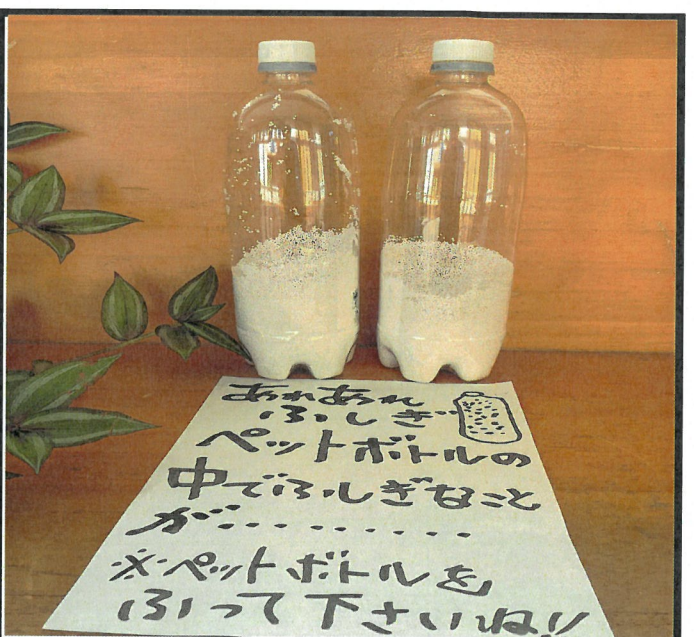 あれあれ
ふしぎ
ペットボトルの
中でふしぎなこと
が・・・・・・・・・・
※ペットボトルを
ふって下さいね!!